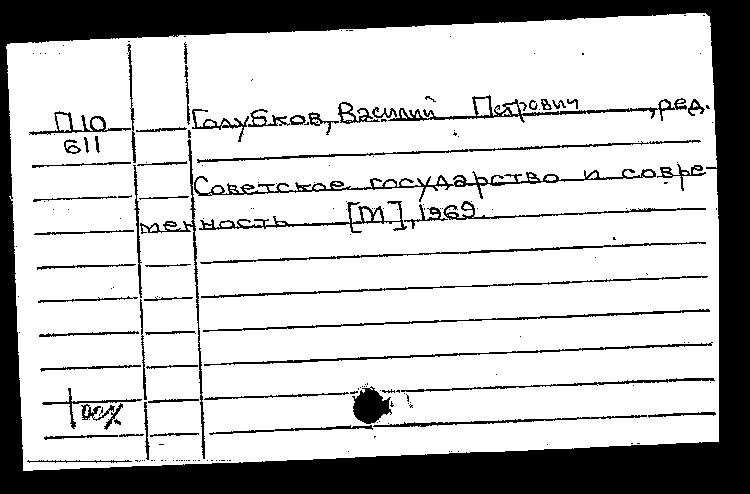 П10 Голубков, Василий Петрович, ред.
611
Советское государство и совре-
менность [М.], 1969.